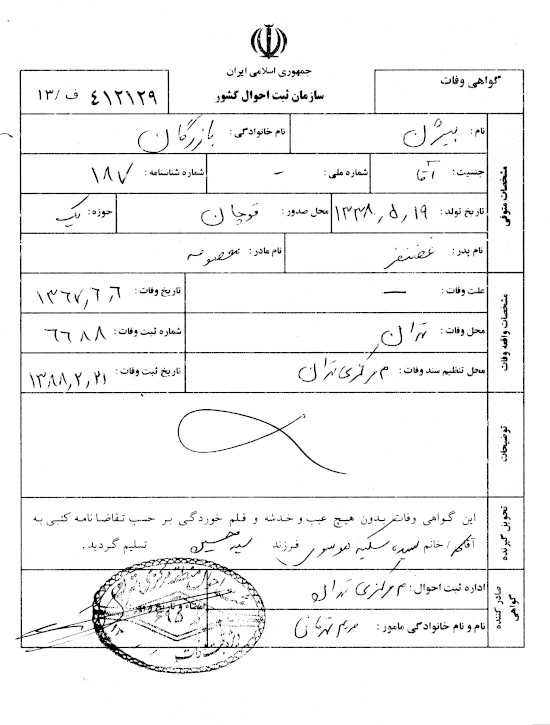 جمهوری اسلامی ایران
سازمان ثبت احوال کشور
گواهی وفات
۴۱۲۱۲۹ ف /۱۳
مشخصات متوفی
نام: بیژن نام خانوادگی: بازرگان
جنسیت: آقا شماره ملی: - شماره شناسنامه: ۱۸۷
تاریخ تولد: ۱۳۳۸٫۵٫۱۹ محل صدور: قوچان حوزه: یک
نام پدر: غضنفر نام مادر: معصومه
مشخصات واقعه وفات
علت وفات: — تاریخ وفات: ۱۳۶۷٫۶٫۶
محل وفات: تهران شماره ثبت وفات: ۶۶۸۸
محل تنظیم سند وفات: مرکزی تهران تاریخ ثبت وفات: ۱۳۸۸٫۲٫۲۱
توضیحات
تحویل گیرنده
این گواهی وفات بدون هیچ عیب و خدشه و قلم خوردگی بر حسب تقاضا نامه کتبی به
آقای/خانم سیده سکینه موسوی فرزند سید حسین تسلیم گردید.
صادر کننده گواهی
اداره ثبت احوال: مرکزی تهران
نام و نام خانوادگی مامور: مریم
امضاء و تاریخ و مهر